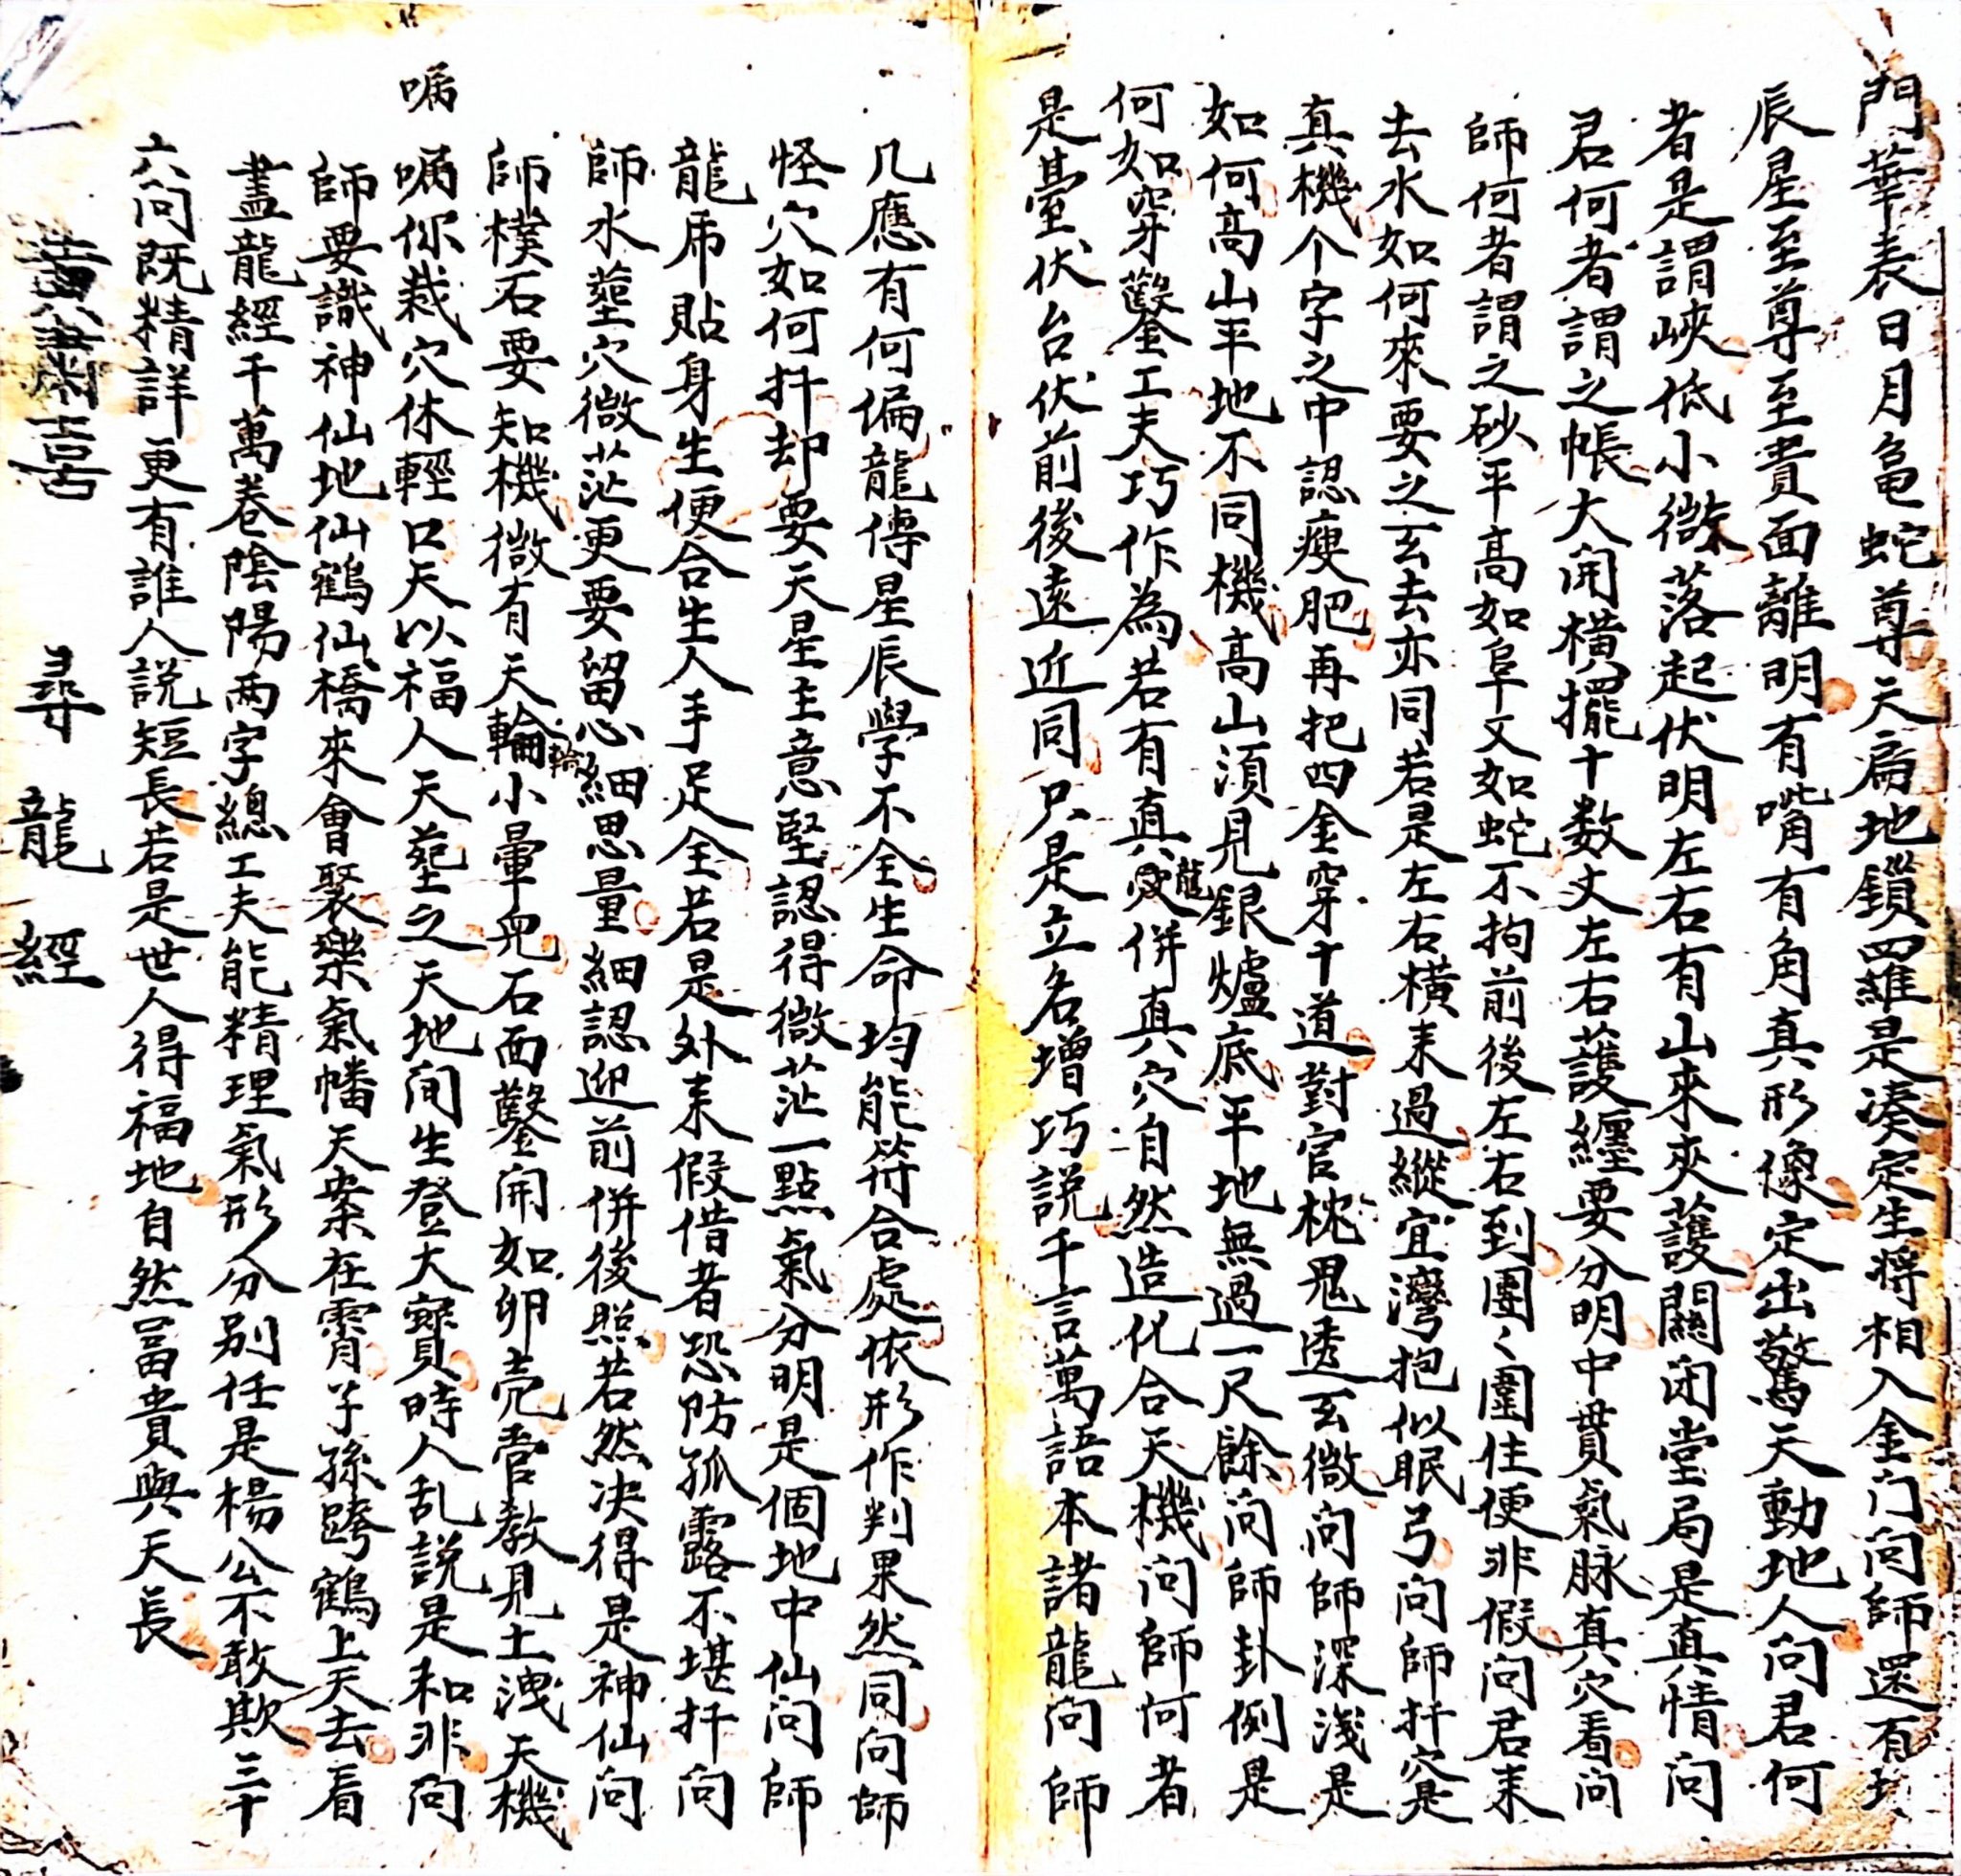 門華表日月龟蛇尊天扃地鎖四羅是凑定生將相入金门问師還有
辰星至尊至貴面離明有嘴有角真形像定出驚天動地人问君何
者是謂峽低小微微落起伏明左右有山來夾護關闭堂局是真情问
君何者謂之帳大開橫擺十数丈左右護纏要分明中貫氣脉真穴看问
師何者謂之砂平高如阜文如蛇不拘前後左右到團々圍住便非假问君来
去水如何來要之玄去亦同若是左右橫来過縱宜灣抱似眠弓问師扦穴是
真機个字之中認瘦肥再把四金穿十道對官枕鬼透玄微问師深淺是
如何高山平地不同機高山須見銀爐底平地無過一尺餘问師卦例是
何如穿鑿工夫巧作為若有真龍併真穴自然造化合天機问師何者
是臺伏台伏前後遠近同只是立名增巧説千言萬語本諸龍问師
几應有何偏龍傳星辰學不全生命均能符合處依形作判果然同问師
怪穴如何扦却要天星主意堅認得微茫一點氣分明是個地中仙问師
龍席貼身生便合生人手足全若是外来假借者恐防孤露不堪扦问
師水塟穴微茫更要留心細思量細認迎前併後照若然决得是神仙问
師樸石要知機微有天輪小暈皃石面鑿開如卵壳管教見土洩天機
嘱
嘱你栽穴休輕口天以福人天塟之天地间生登大寶時人乱説是和非问
師要識神仙地仙鶴仙橋來會聚樂氣幡天案在霄子孫跨鶴上天去看
盡龍經千萬卷陰陽两字總工夫能精理氣形分别任是楊公不敢欺三十
六问既精詳更有誰人説短長若是世人得福地自然冨貴與天長
尋龍經